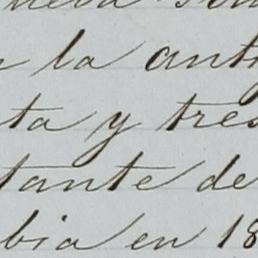 la anti
ta y tres
tante de
bia en 18